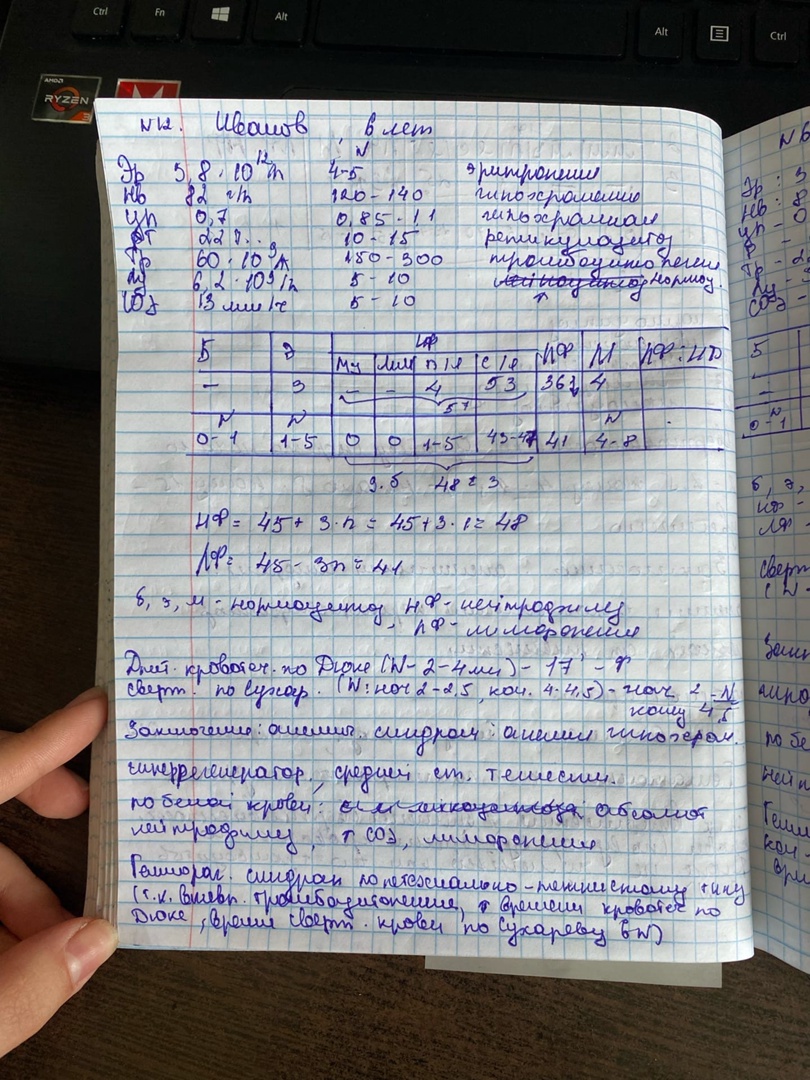 Ctrl Fn Alt Alt Ctrl
AMD
RYZEN
№12. Иванов 6 лет
N
Эр 3,8·10¹²/л 4-5 эритропения
Hb 82 г/л 120-140 гипохромемия
ЦП 0,7 0,85-1,1 гипохромная
РТ 22%.. 10-15 ретикулоцитоз
Тр 60·10⁹/л 150-300 тромбоцитопения
Лц 6,2·10⁹/л 5-10 нормоц.
СОЭ 13 мм/ч 5-10 ↑
Б Э НФ ЛФ М ЛФ:НФ
Мц Ммц П/я С/я
- 3 - - 4 53 36↓ 4
57
N N N
0-1 1-5 0 0 1-5 43-47 41 4-8
48±3
НФ = 45 + 3·n = 45+3·1 = 48
ЛФ = 45 - 3n = 41
б, э, м - нормоцитоз, НФ - нейтрофилез
, ЛФ - лимфопения
Длит. кровотеч. по Дюке (N-2-4 мин) - 17' - ↑
сверт. по Сухар. (N: нач 2-2,5, кон. 4-4,5) - нач 2 - N
конец 4,5
Заключение: анемич. синдром: анемия гипохром.
гиперрегенератор., средней ст. тяжести.
по белой крови: абсолют
нейтрофилез, ↑ СОЭ, лимфопения
Геморраг. синдром по петехиально-пятнистому типу
(т.к. выявл. тромбоцитопения, ↑ времени кровотеч по
Дюке, время сверт. крови по Сухареву в N)
№ 6
Эр: 3
Hb: 8
ЦП - 0
Тр - 2
СОЭ -
Б
-
N
0-1
б, э,
НФ -
ЛФ -
сверт
(N-
Закл
по бе
нейт
Гемм
кон.
вре